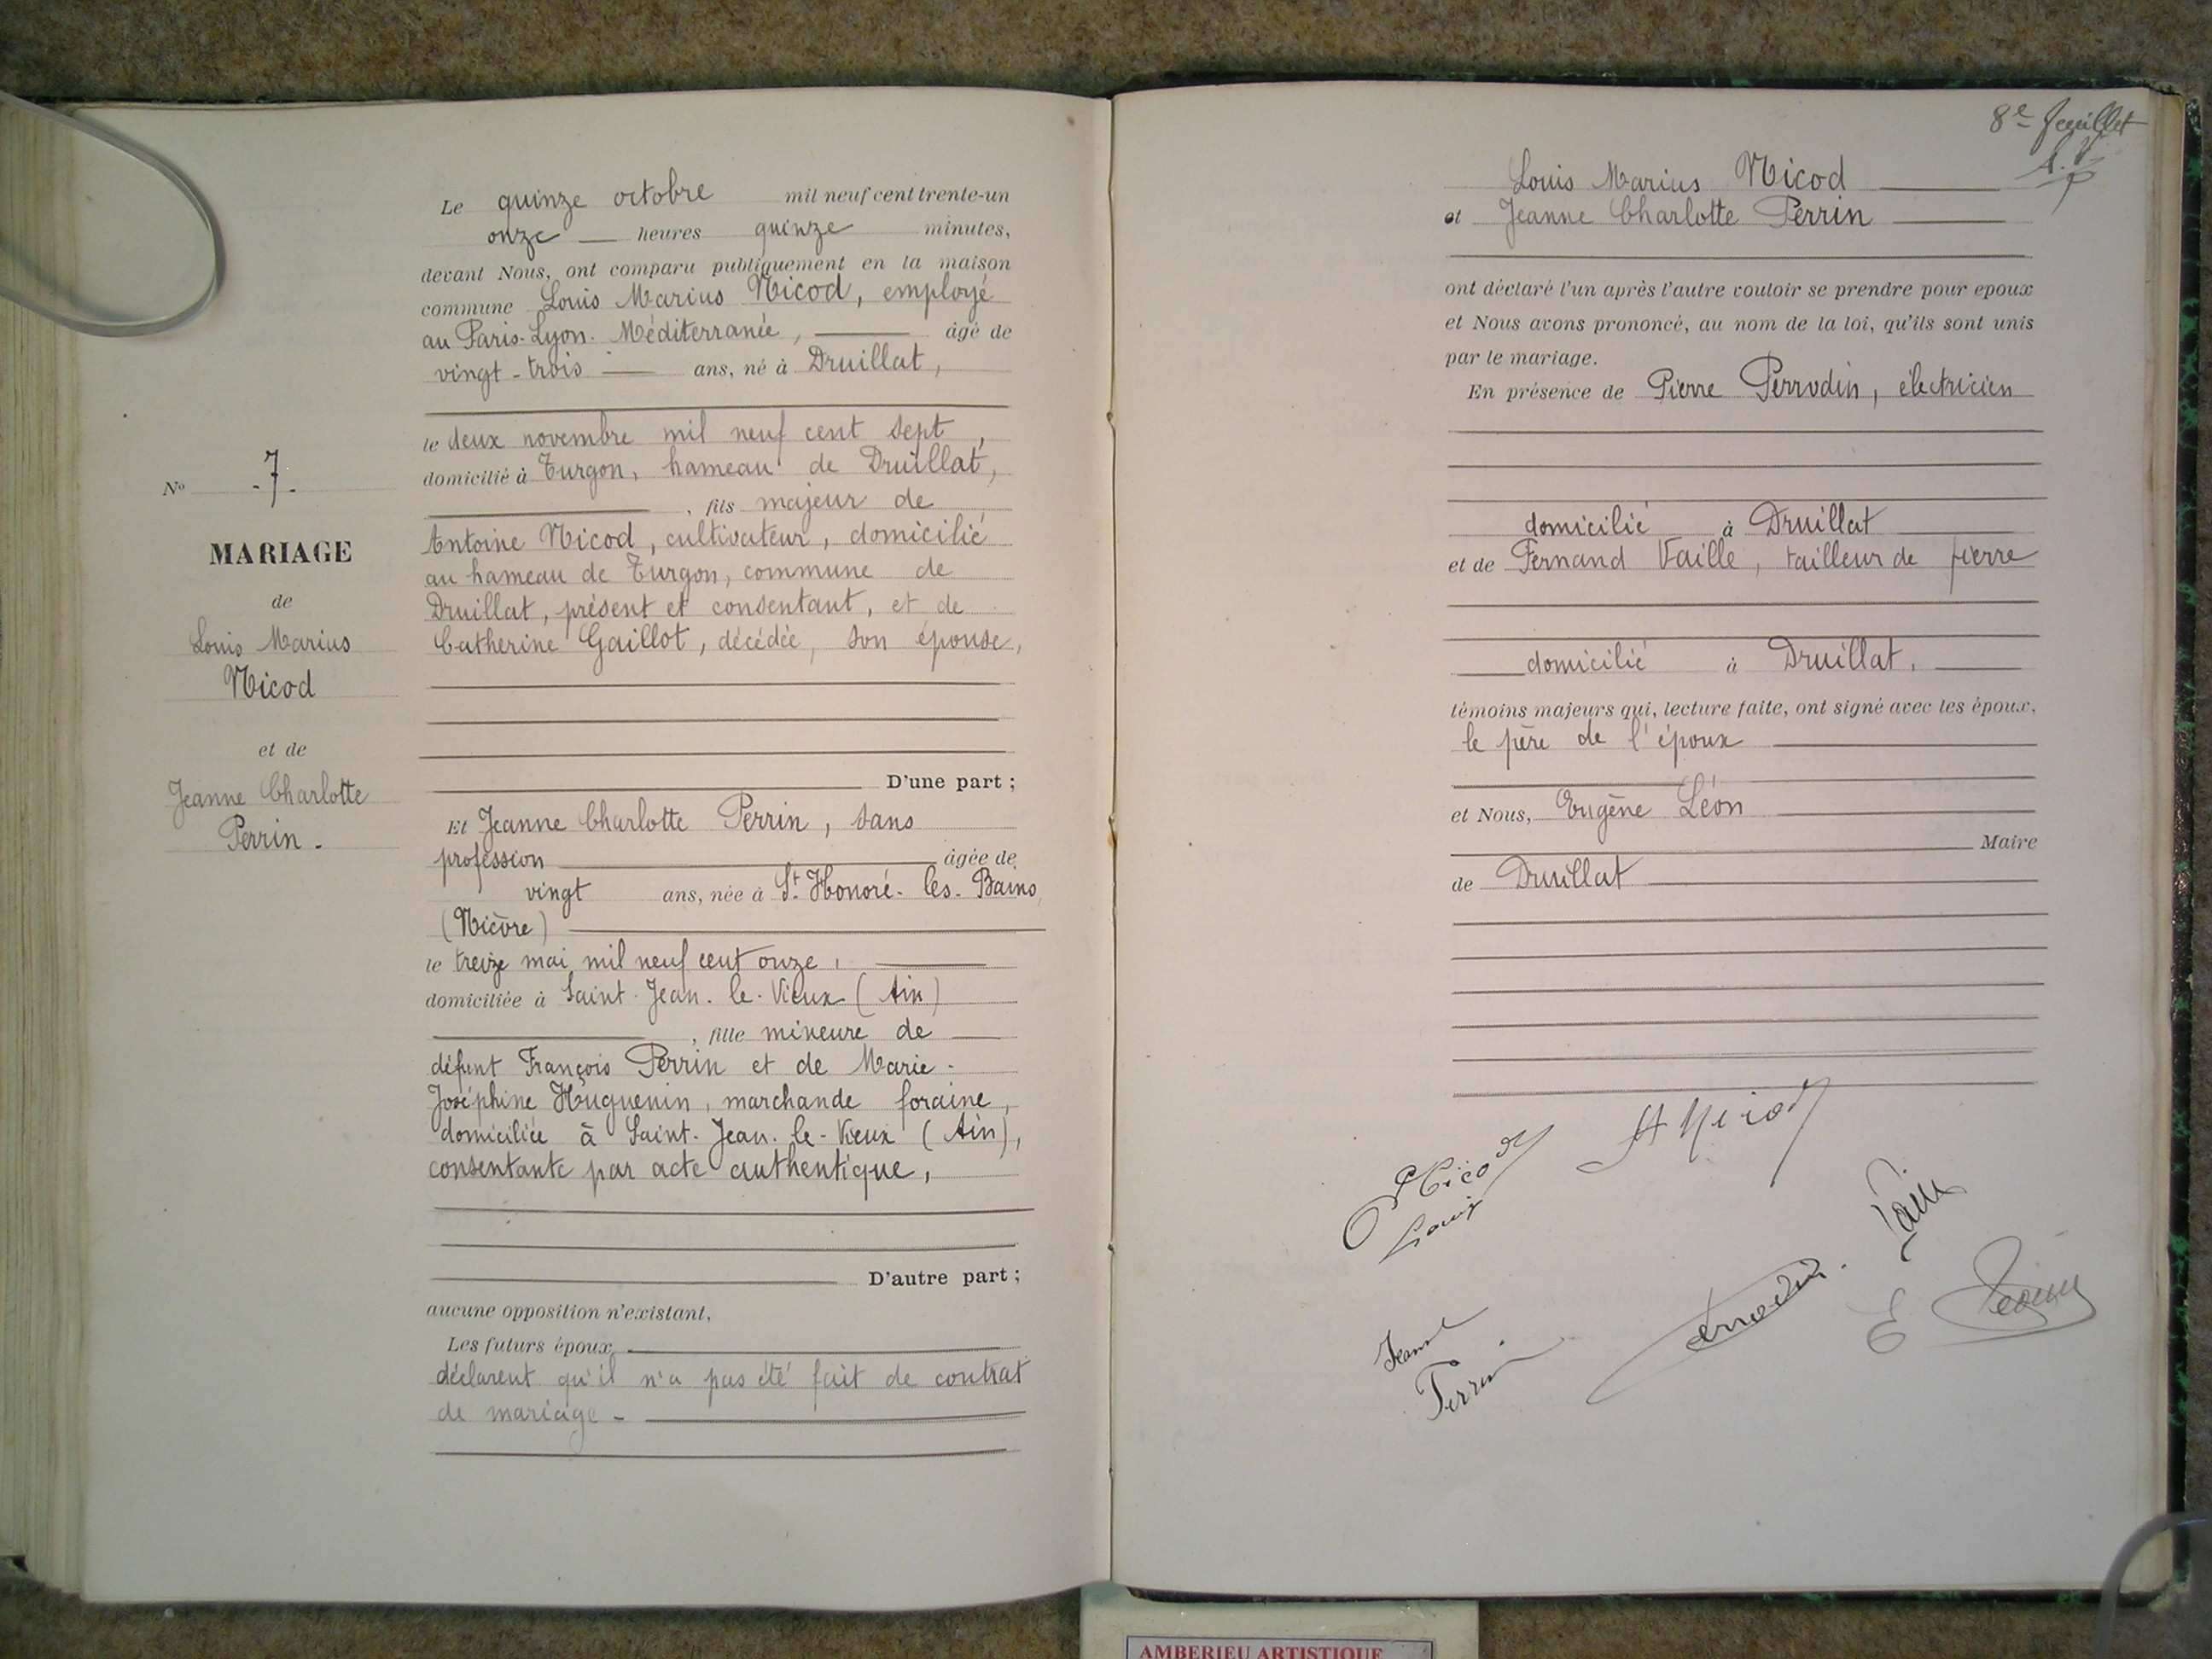 N° -7-
MARIAGE
de
Louis Marius
Nicod
et de
Jeanne Charlotte
Perrin.
Le quinze octobre mil neuf cent trente-un
onze heures quinze minutes,
devant Nous, ont comparu publiquement en la maison
commune Louis Marius Nicod, employé
au Paris-Lyon-Méditerranée, âgé de
vingt-trois ans, né à Druillat,
le deux novembre mil neuf cent sept,
domicilié à Turgon, hameau de Druillat,
, fils majeur de
Antoine Nicod, cultivateur, domicilié
au hameau de Turgon, commune de
Druillat, présent et consentant, et de
Catherine Gaillot, décédée, son épouse,
D'une part ;
Et Jeanne Charlotte Perrin, sans
profession âgée de
vingt ans, née à St. Honoré-les-Bains,
(Nièvre)
le treize mai mil neuf cent onze,
domiciliée à Saint-Jean-le-Vieux (Ain)
, fille mineure de
défunt François Perrin et de Marie-
Joséphine Huguenin, marchande foraine,
domiciliée à Saint-Jean-le-Vieux (Ain),
consentante par acte authentique,
D'autre part ;
aucune opposition n'existant,
Les futurs époux
déclarent qu'il n'a pas été fait de contrat
de mariage -
8e feuillet
Louis Marius Nicod
et Jeanne Charlotte Perrin
ont déclaré l'un après l'autre vouloir se prendre pour epoux
et Nous avons prononcé, au nom de la loi, qu'ils sont unis
par le mariage.
En présence de Pierre Perrodin, électricien
domicilié à Druillat
et de Fernand Vaille, tailleur de pierre
domicilié à Druillat,
témoins majeurs qui, lecture faite, ont signé avec les époux,
le père de l'époux
et Nous, Eugène Léon
Maire
de Druillat
Nicod
Louis
A Nicod
Jeanne
Perrin
AMBERIEU ARTISTIQUE